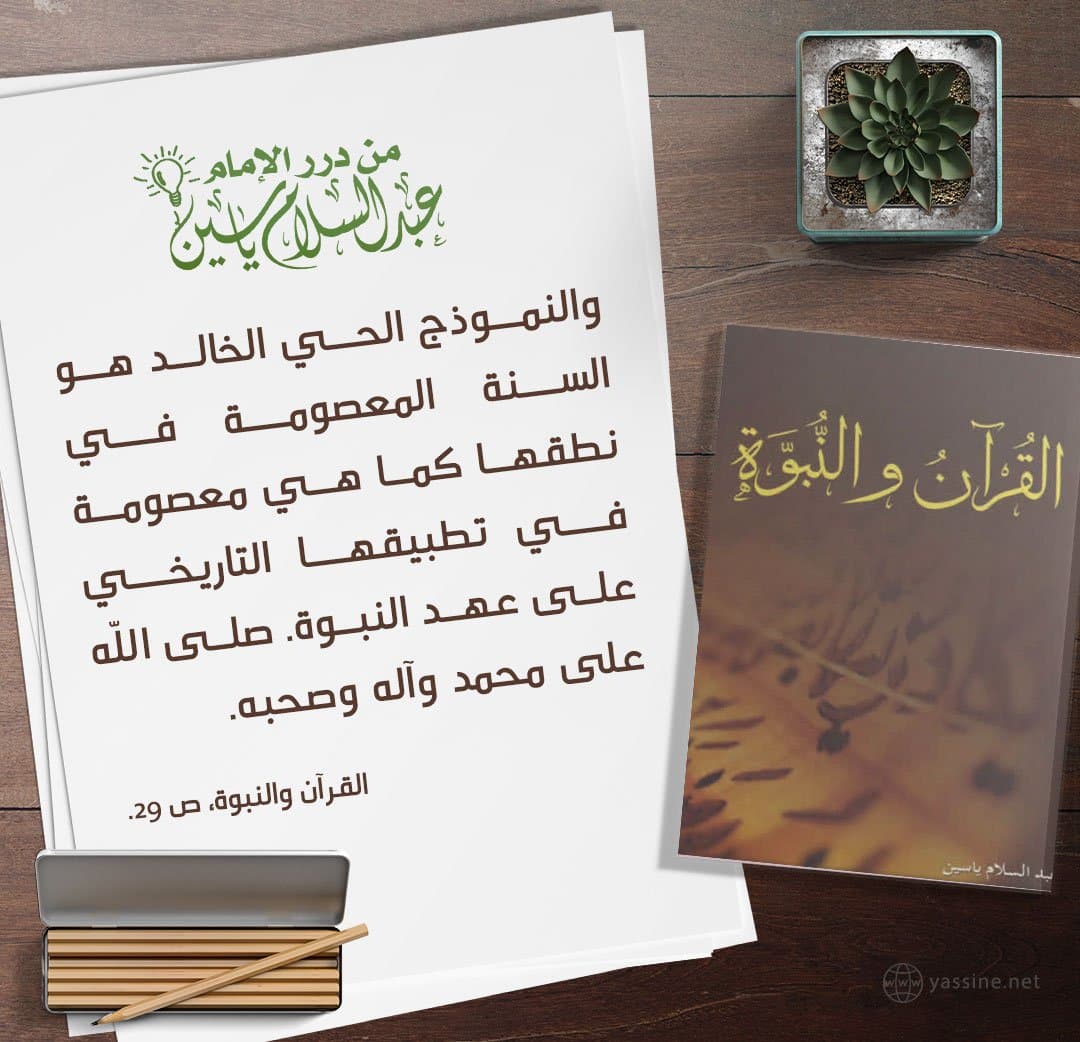 من درر الإمام
عبد السلام ياسين
والنمــوذج الحــي الخالــد هــو
الســنة المعصومــة فــي
نطقهــا كمــا هــي معصومــة
فــي تطبيقهــا التاريخــي
علــى عهــد النبــوة. صلــى اللّه
على محمد وآله وصحبه.
القرآن والنبوة، ص 29.
القُرآنُ و النُّبوَّة
عبد السلام ياسين
yassine.net